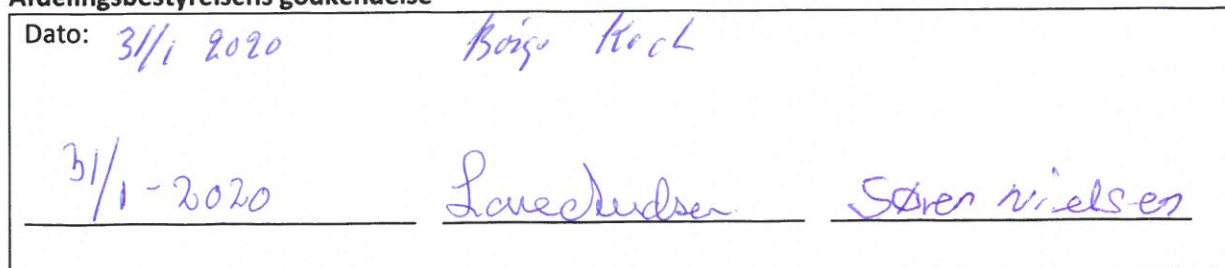 Afdelingsbestyrelsens godkendelse
Dato: 31/1 2020 Börge Koch
31/1-2020 Søren Nielsen